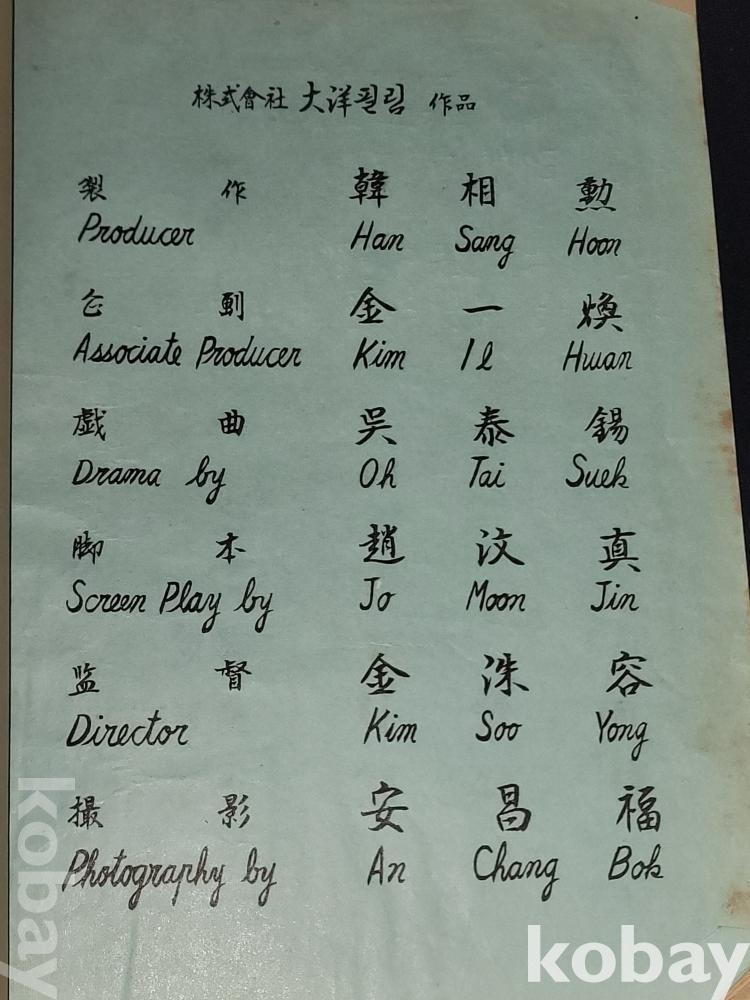 株式會社 大洋필림 作品
製作 韓相勲
Producer Han Sang Hoon
企劃 金一煥
Associate Producer Kim Il Hwan
戲曲 吳泰錫
Drama by Oh Tai Suek
脚本 趙汶真
Screen Play by Jo Moon Jin
监督 金洙容
Director Kim Soo Yong
撮影 安昌福
Photography by An Chang Bok
kobay
kobay